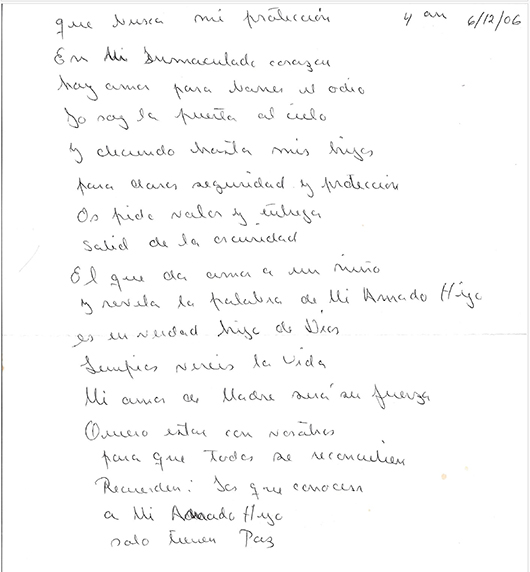 que busca mi protección 4 am 6/12/06
En Mi Inmaculado corazon
hay amor para vencer el odio
Yo soy la puerta al cielo
y desciendo hasta mis hijos
para daros seguridad y protección
Os pido valor y entrega
Salid de la oscuridad
El que da amor a un niño
y revela la palabra de Mi Amado Hijo
es en verdad hijo de Dios
vereis la vida
Mi amor de Madre será su fuerza
Quiero estar con vosotros
para que todos se reconcilien
Recuerden: Los que conocen
a Mi Amado Hijo
solo tienen Paz